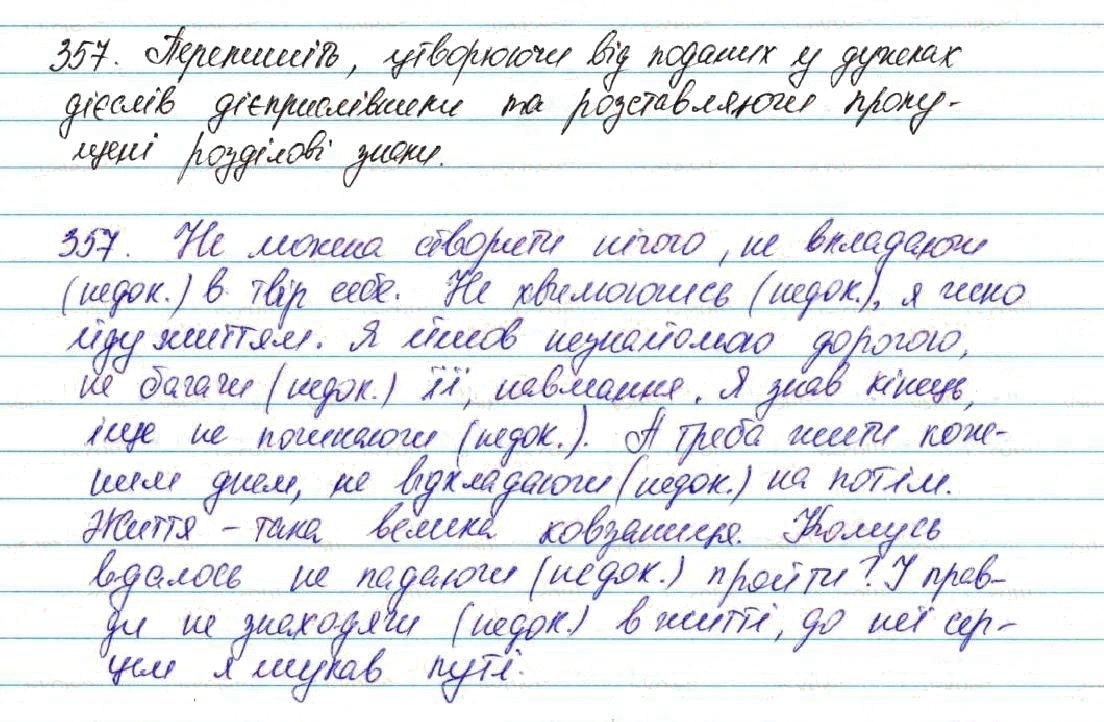 357. Перепишіть, утворюючи від поданих у дужках
дієслів дієприслівники та розставляючи пропу-
щені розділові знаки.
357. Не можна створити нічого, не вкладаючи
(недок.) в твір себе. Не квиплячись (недок.), я тихо
йду життям. Я йшов незнайомою дорогою,
не бачачи (недок.) її, навмання. Я знав кінець,
іще не починаючи (недок.). А треба жити кож-
ним днем, не відкладаючи (недок.) на потім.
Життя – така велика ковзаниця. Комусь
вдалось не падаючи (недок.) пройти? І прав-
ди не знаходячи (недок.) в житті, до неї сер-
цем я шукав путі.